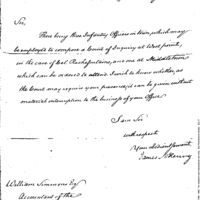 Sir,
There being three Infantry Officers in town, which may
be employed to compose a Court of Inquiry at West point,
in the case of Col. Rochefontaine, and one at Middletown
which can be ordered to attend. I wish to know whether as
the Court may require your presence, it can be given without
material interruption to the business of your Office.
I am Sir
with respect
Your obedient Servant
James McHenry
William Simmons Esq
Accountant of the